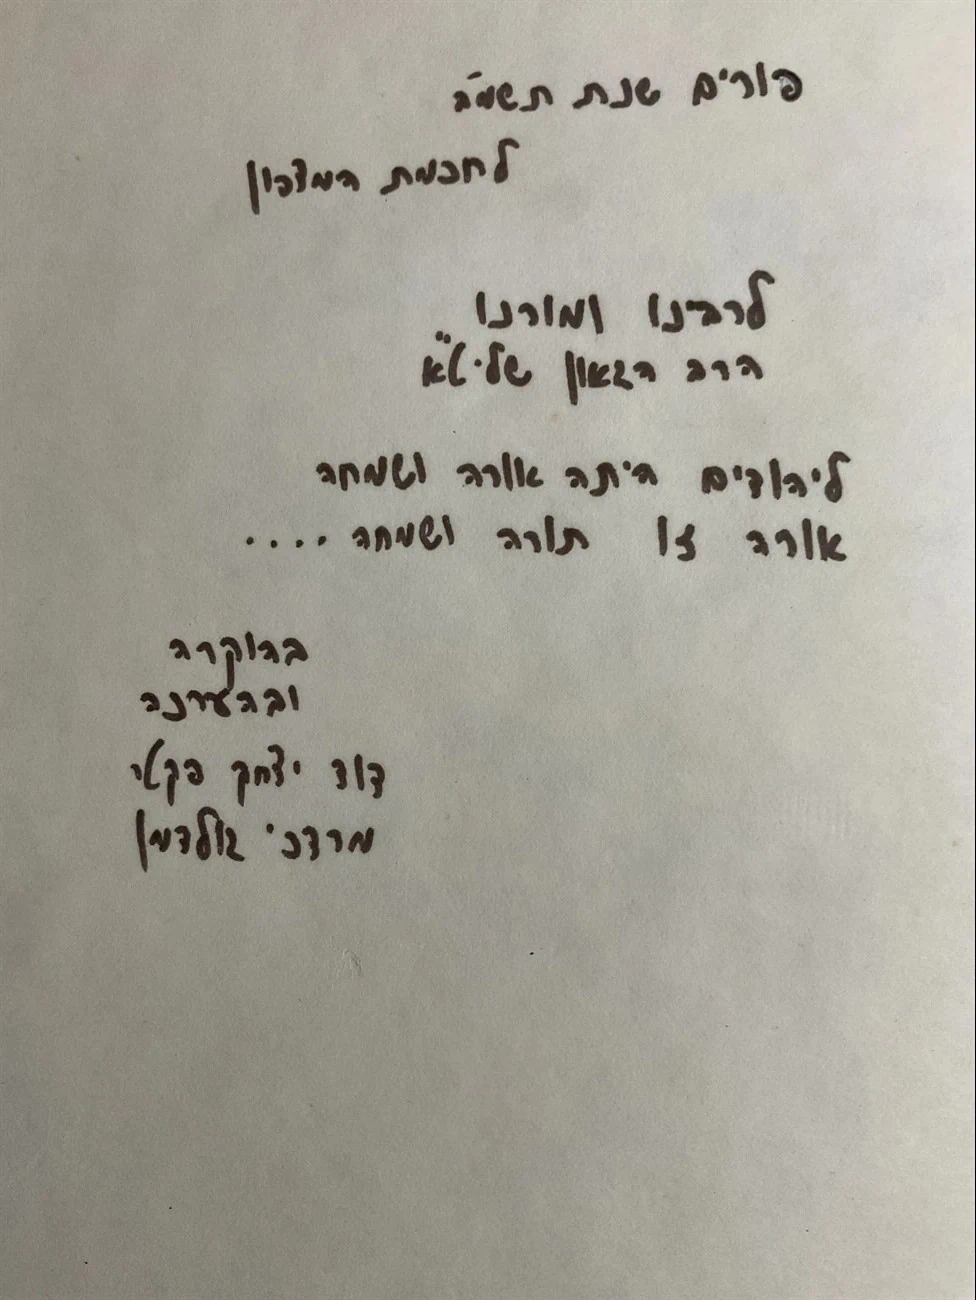 פורים שנת תשמ"ב
לחכמת המצפון
לרבינו ומורנו
הרב הגאון שליט"א
ליהודים היתה אורה ושמחה
אורה זו תורה ושמחה....
בהוקרה
ובהערכה
דוד יצחק
מרדכי גולדמן